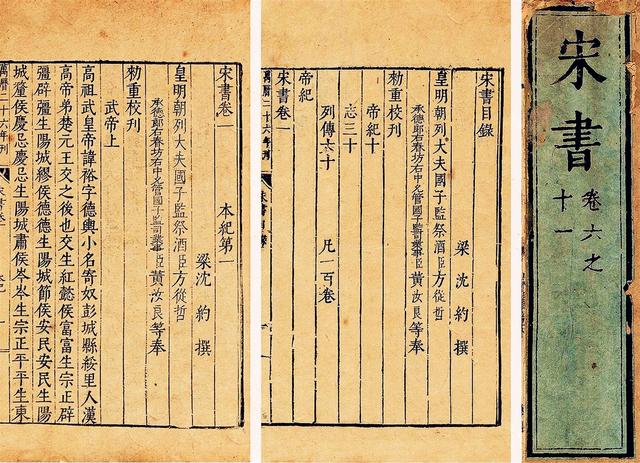 宋書
卷六之
十一
宋書目錄
梁沈約撰
皇明朝列大夫國子監祭酒臣方從哲
承德郎右春坊右中允管國子監司業事臣黃汝良等奉
勑重校刊
帝紀十
志三十
列傳六十
凡一百卷
帝紀
宋書卷一
萬曆二十六年刊
宋書目錄
宋書卷一 本紀第一
梁沈約撰
皇明朝列大夫國子監祭酒臣方從哲
承德郎右春坊右中允管國子監司業事臣黃汝良等奉
勑重校刊
武帝上
高祖武皇帝諱裕字德輿小名寄奴彭城縣綏里人漢
高帝弟楚元王交之後也交生紅懿侯富富生宗正辟
彊辟彊生陽城繆侯德德生陽城節侯安民安民生陽
城釐侯慶忌慶忌生陽城肅侯岑岑生宗正平平生東
萬曆二十六年刊
宋書卷一